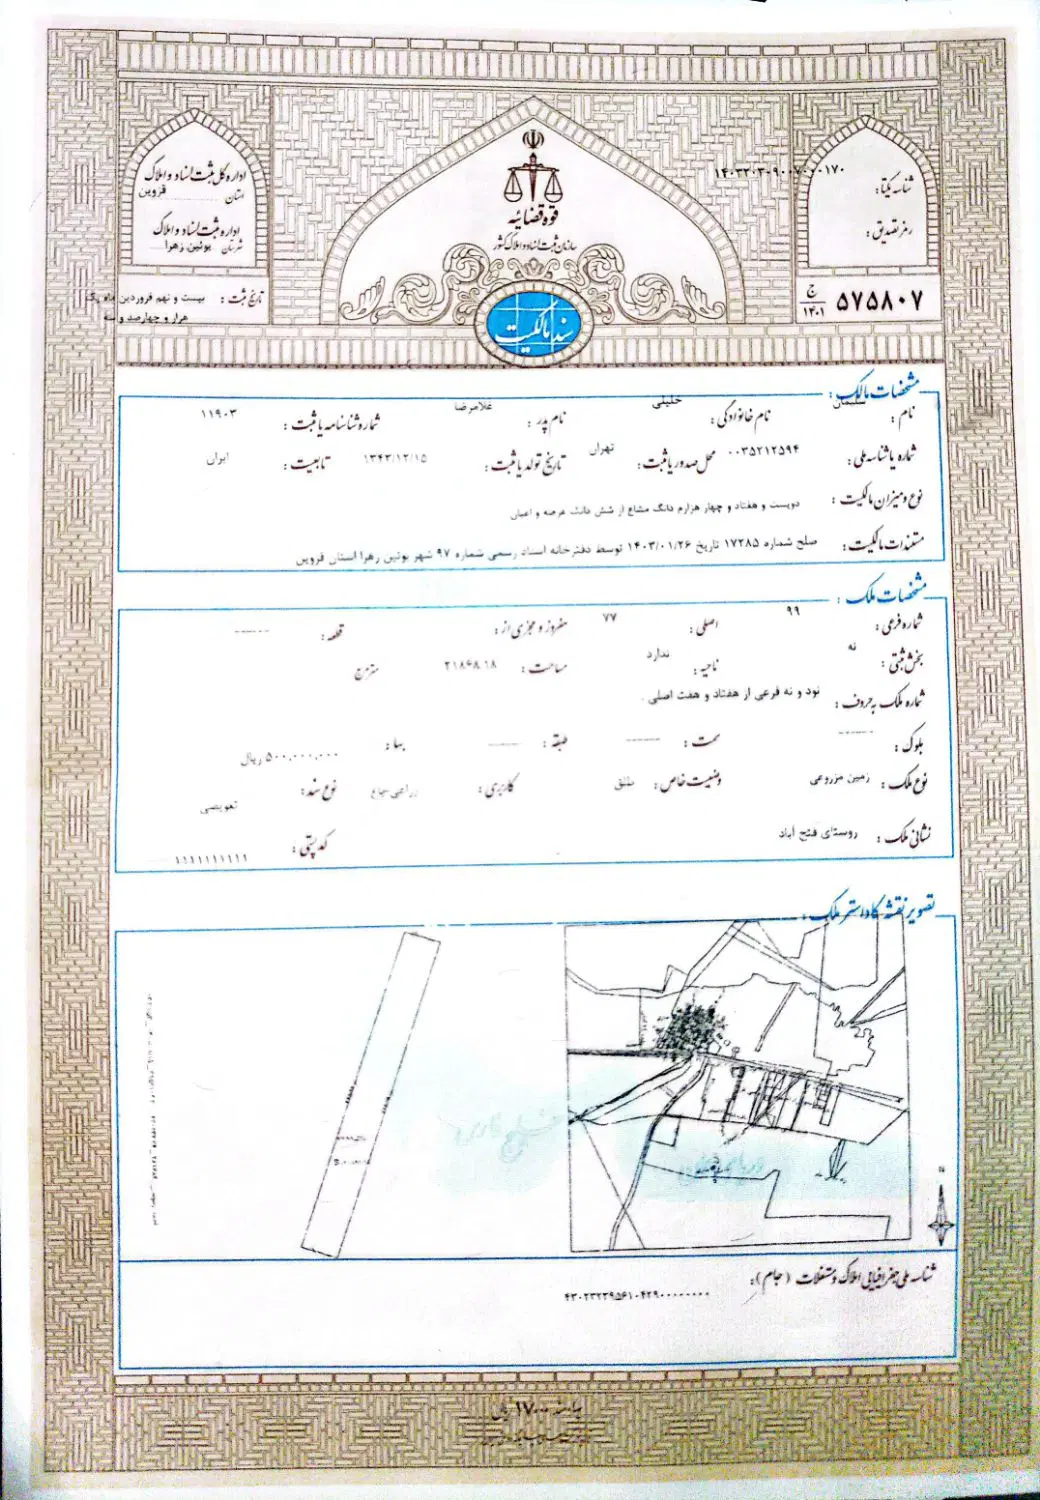 اداره کل ثبت اسناد و املاک
استان قزوین
اداره ثبت اسناد و املاک
شهرستان بوئین زهرا
تاریخ ثبت : بیست و نهم فروردین ماه یک
هزار و چهارصد و سه
قوه قضائیه
سازمان ثبت اسناد و املاک کشور
سند مالکیت
شناسه یکتا :
رمز تصدیق :
ج
۱۴۰۱
۵۷۵۸۰۷
مشخصات مالک :
نام : سلیمان نام خانوادگی : خلیلی نام پدر : غلامرضا شماره شناسنامه یا ثبت : ۱۱۹۰۳
شماره یا شناسه ملی : ۰۰۳۵۲۱۲۵۹۴ محل صدور یا ثبت : تهران تاریخ تولد یا ثبت : ۱۳۴۳/۱۲/۱۵ تابعیت : ایران
نوع و میزان مالکیت : دویست و هفتاد و چهار هزارم دانگ مشاع از شش دانگ عرصه و اعیان
مستندات مالکیت : صلح شماره ۱۷۲۸۵ تاریخ ۱۴۰۳/۰۱/۲۶ توسط دفترخانه اسناد رسمی شماره ۹۷ شهر بوئین زهرا استان قزوین
مشخصات ملک :
شماره فرعی : ۹۹ اصلی : ۷۷ مفروز و مجزی از : قطعه : ------
بخش ثبتی : نه ناحیه : ندارد مساحت : ۲۱۸۶۸.۱۸ مترمربع
شماره ملک به حروف : نود و نه فرعی از هفتاد و هفت اصلی .
بلوک : ------ سمت : ------ طبقه : ------ بهاء : ۵۰۰,۰۰۰,۰۰۰ ریال
نوع ملک : زمین مزروعی وضعیت خاص : مطلق کاربری : زراعی-باغ نوع سند : تعویضی
نشانی ملک : روستای فتح آباد کد پستی : ۱۱۱۱۱۱۱۱۱۱
تصویر نقشه کاداستر ملک :
N
شناسه ملی جغرافیایی املاک و مستغلات (جام) :